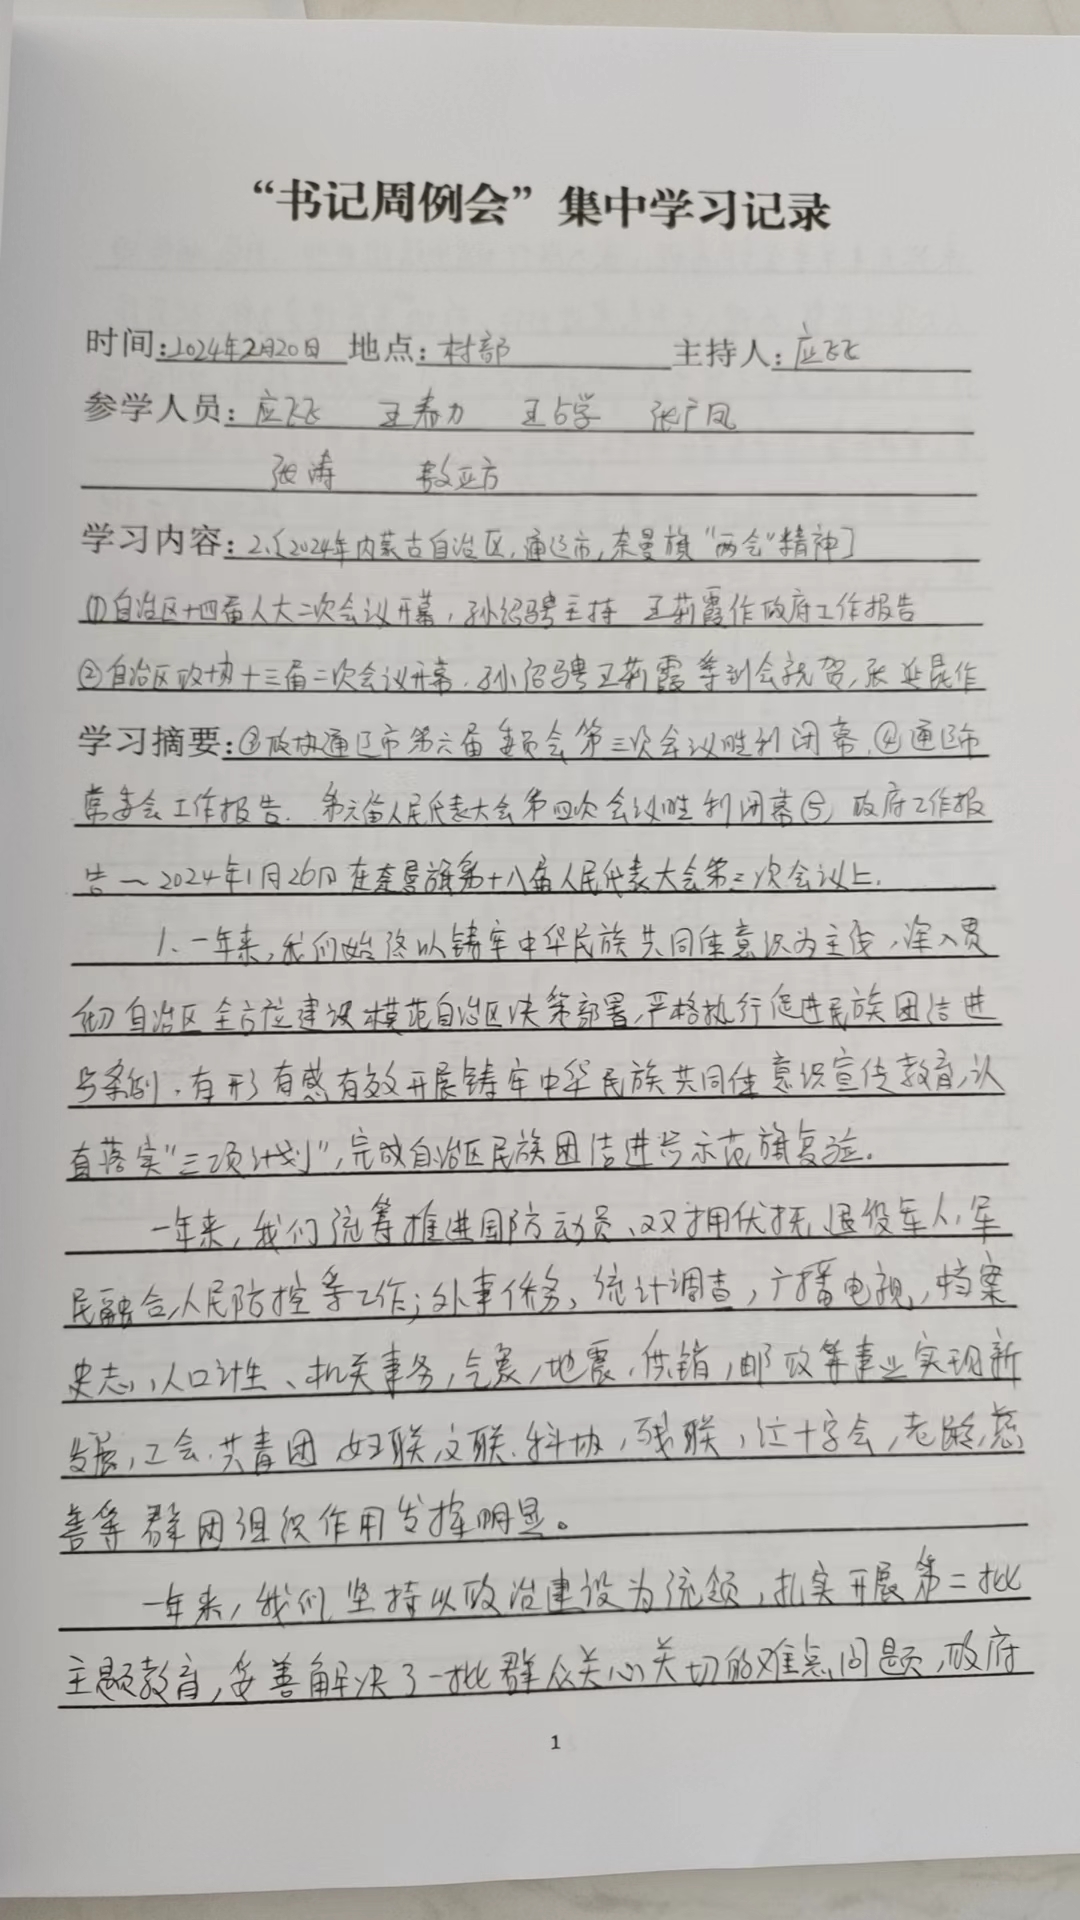 “书记周例会”集中学习记录
时间:2024年2月20日 地点:村部 主持人:应飞飞
参学人员:应飞飞 王春力 王占学 张广凤
张涛 敖亚方
学习内容:2.〔2024年内蒙古自治区,通辽市,奈曼旗“两会”精神〕
①自治区十四届人大二次会议开幕,孙绍骋主持 王莉霞作政府工作报告
②自治区政协十三届二次会议开幕.孙绍骋王莉霞等到会祝贺,张延昆作
学习摘要:③政协通辽市第六届委员会第三次会议胜利闭幕.④通辽市
常委会工作报告. 第六届人民代表大会第四次会议胜利闭幕⑤,政府工作报
告—2024年1月26日在奈曼旗第十八届人民代表大会第三次会议上.
1.一年来,我们始终以铸牢中华民族共同体意识为主线,深入贯
彻自治区全方位建设模范自治区决策部署,严格执行促进民族团结进
步条例.有形有感有效开展铸牢中华民族共同体意识宣传教育,认
真落实“三项计划”,完成自治区民族团结进步示范旗复验。
一年来,我们统筹推进国防动员、双拥优抚,退役军人,军
民融合,人民防控等工作;外事侨务,统计调查,广播电视,档案
史志,人口计生、机关事务,气象,地震,供销,邮政等事业实现新
发展,工会.共青团 妇联,文联.科协,残联,红十字会,老龄,慈
善等群团组织作用发挥明显。
一年来,我们坚持以政治建设为统领,扎实开展第二批
主题教育,妥善解决了一批群众关心关切的难点问题,政府
1